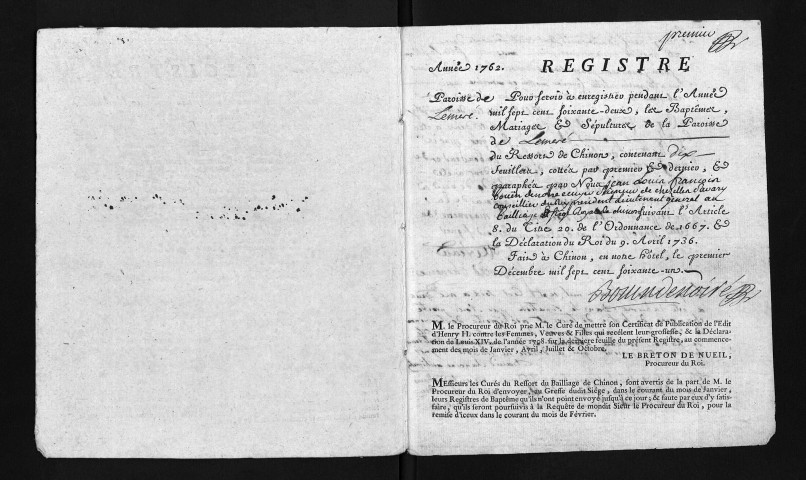 premier
Année 1762. REGISTRE
Paroisse de
Lemeré.
Pour servir à enregistrer pendant l'Année
mil sept cent soixante-deux, les Baptêmes,
Mariages & Sépultures de la Paroisse
de Lemeré
du Ressort de Chinon, contenant dix
feuillets, cottés par premier & dernier, &
paraphés par Nous Jean Louis françois
conseiller du Roy president lieutenant general au
Bailliage & Siége Royal de Chinon suivant l'Article
8. du Titre 20. de l'Ordonnance de 1667. &
la Déclaration du Roi du 9. Avril 1736.
Fait à Chinon, en notre hôtel, le premier
Décembre mil sept cent soixante-un.
M. le Procureur du Roi prie M. le Curé de mettre son Certificat de Publication de l'Edit
d'Henry H. contre les Femmes, Veuves & Filles qui recélent leur grossesse, & la Déclara-
tion de Louis XIV. de l'année 1708. sur la derniere feuille du présent Registre, au commence-
ment des mois de Janvier, Avril, Juillet & Octobre.
LE BRETON DE NUEIL,
Procureur du Roi.
MEssieurs les Curés du Ressort du Bailliage de Chinon, sont avertis de la part de M. le
Procureur du Roi d'envoyer, au Greffe dudit Siége, dans le courant du mois de Janvier,
leurs Registres de Baptême qu'ils n'ont point envoyé jusqu'à ce jour; & faute par eux d'y satis-
faire, qu'ils seront poursuivis à la Requête de mondit Sieur le Procureur du Roi, pour la
remise d'iceux dans le courant du mois de Février.